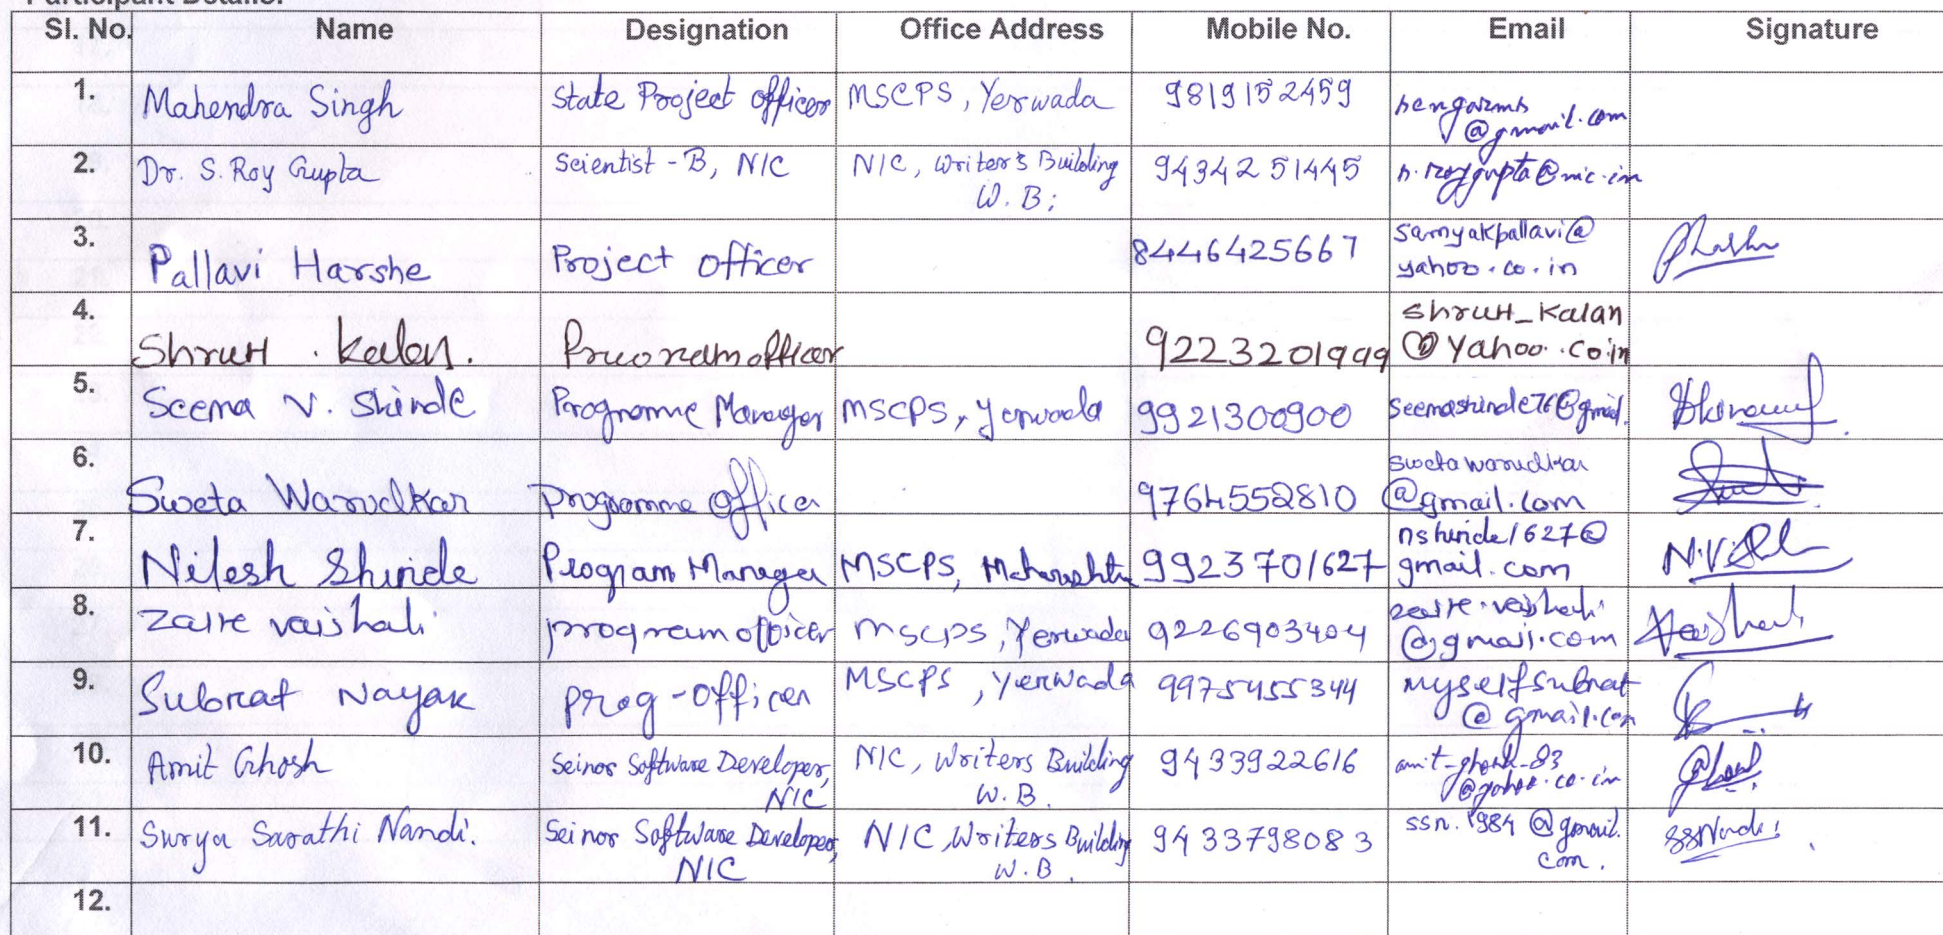 Participant Details:
Sl. No. Name Designation Office Address Mobile No. Email Signature
1. Mahendra Singh State Project officer MSCPS, Yerwada 9819152459
@gmail.com
2. Dr. S. Roy Gupta Scientist - B, NIC NIC, Writer's Building 9434251445
W.B;
3. Pallavi Harshe Project officer 8446425667 samyakpallavi@
yahoo.co.in
4. Shruti . Kalan. officer 9223201999 shruti_kalan
@yahoo.co.in
5. Seema V. Shinde Programme Manager MSCPS, Yerwada 9921300900 seemashinde76@gmail.
6. Sweta Warudkar Programme Officer 9764552810 swetawarudkar
@gmail.com
7. Nilesh Shinde Program Manager MSCPS, Maharashtra 9923701627 nshinde1627@
gmail.com
8. Zarre vaishali program officer MSCPS, Yerwada 9226903404
@gmail.com
9. Subrat Nayak Prog-officer MSCPS, Yerwada 9975455344 myselfsubrat
@gmail.com
10. Amit Ghosh Seinor Software Developer, NIC, Writers Building 9433922616 amit_ghosh_83
NIC W.B. @yahoo.co.in
11. Surya Sarathi Nandi. Seinor Software Developer, NIC, Writers Building 9433798083 ssn.1984@gmail.
NIC W.B. com.
12.